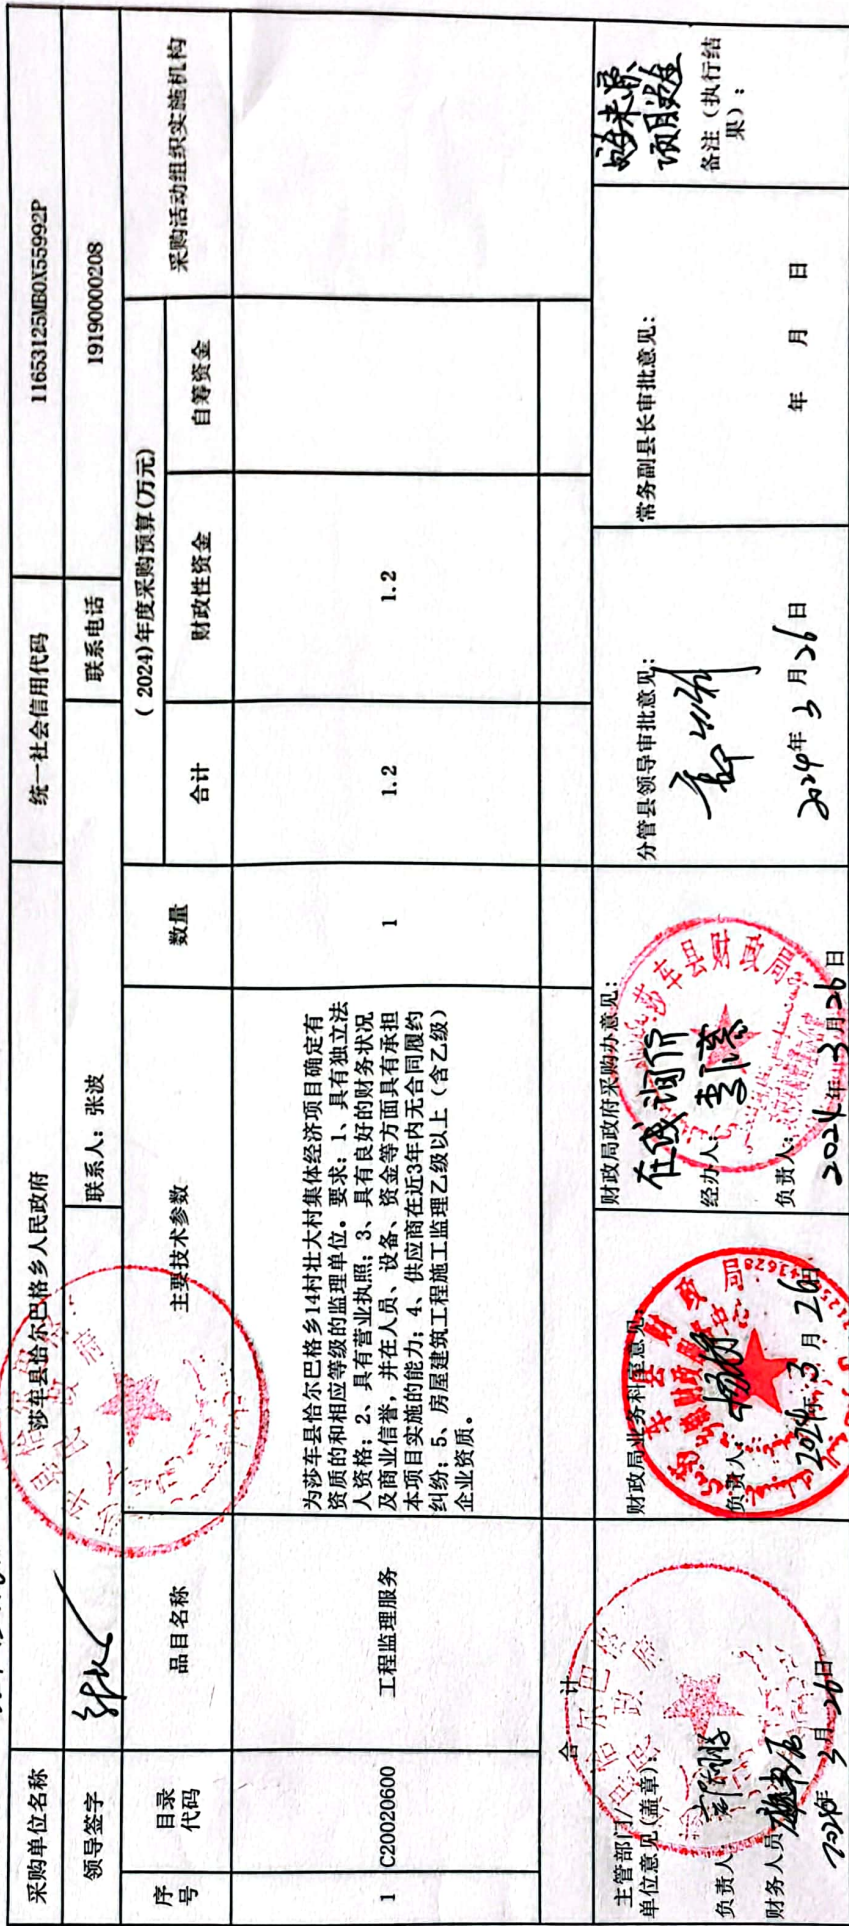 采购单位名称 莎车县恰尔巴格乡人民政府 统一社会信用代码 11653125MB0X55992P
领导签字 联系人：张波 联系电话 19190000208
序号 目录代码 品目名称 主要技术参数 数量 （2024)年度采购预算(万元) 采购活动组织实施机构
合计 财政性资金 自筹资金
1 C20020600 工程监理服务
为莎车县恰尔巴格乡14村壮大村集体经济项目确定有
资质的和相应等级的监理单位。要求：1、具有独立法
人资格；2、具有营业执照；3、具有良好的财务状况
及商业信誉，并在人员、设备、资金等方面具有承担
本项目实施的能力；4、供应商在近3年内无合同履约
纠纷；5、房屋建筑工程施工监理乙级以上（含乙级）
企业资质。
1 1.2 1.2
合 计
主管部门/
单位意见(盖章)：
负责人：
财务人员
2024年3月26日
财政局业务科室意见：
负责人：
2024年3月26日
财政局政府采购办意见：
在线询价
经办人：
负责人：
2024年3月26日
莎车县财政局
分管县领导审批意见：
2024年3月26日
常务副县长审批意见：
年 月 日
备注（执行结
果）：